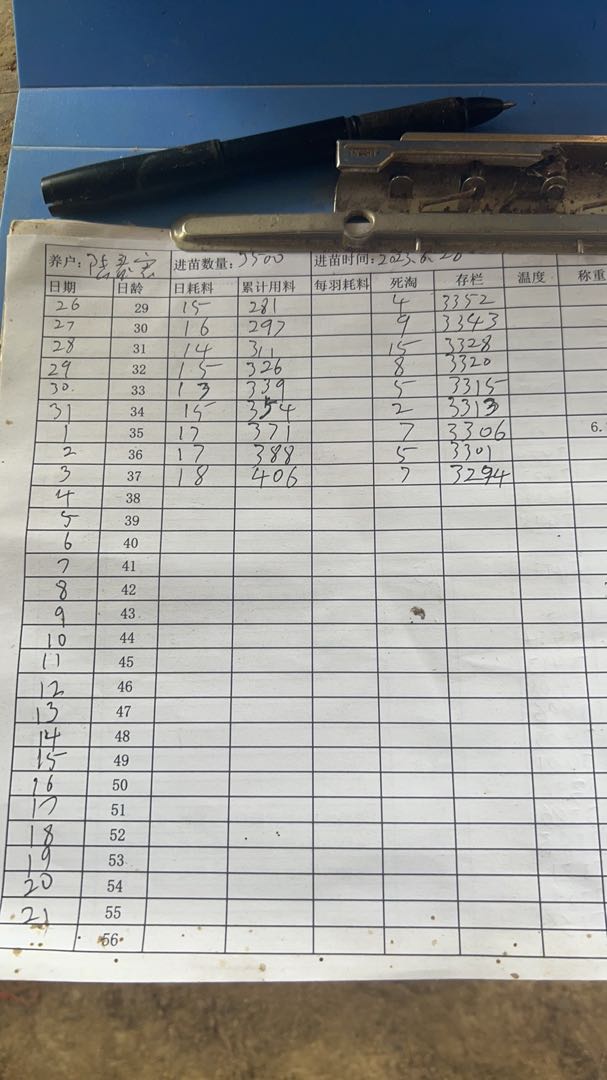 养户: 进苗数量:3500 进苗时间:2023.6.28
日期 日龄 日耗料 累计用料 每羽耗料 死淘 存栏 温度 称重
26 29 15 281 4 3352
27 30 16 297 9 3343
28 31 14 311 15 3328
29 32 15 326 8 3320
30. 33 13 339 5 3315
31 34 15 354 2 3313
1 35 17 371 7 3306 6.
2 36 17 388 5 3301
3 37 18 406 7 3294
4 38
5 39
6 40
7 41
8 42
9 43
10 44
11 45
12 46
13 47
14 48
15 49
16 50
17 51
18 52
19 53
20 54
21 55
56